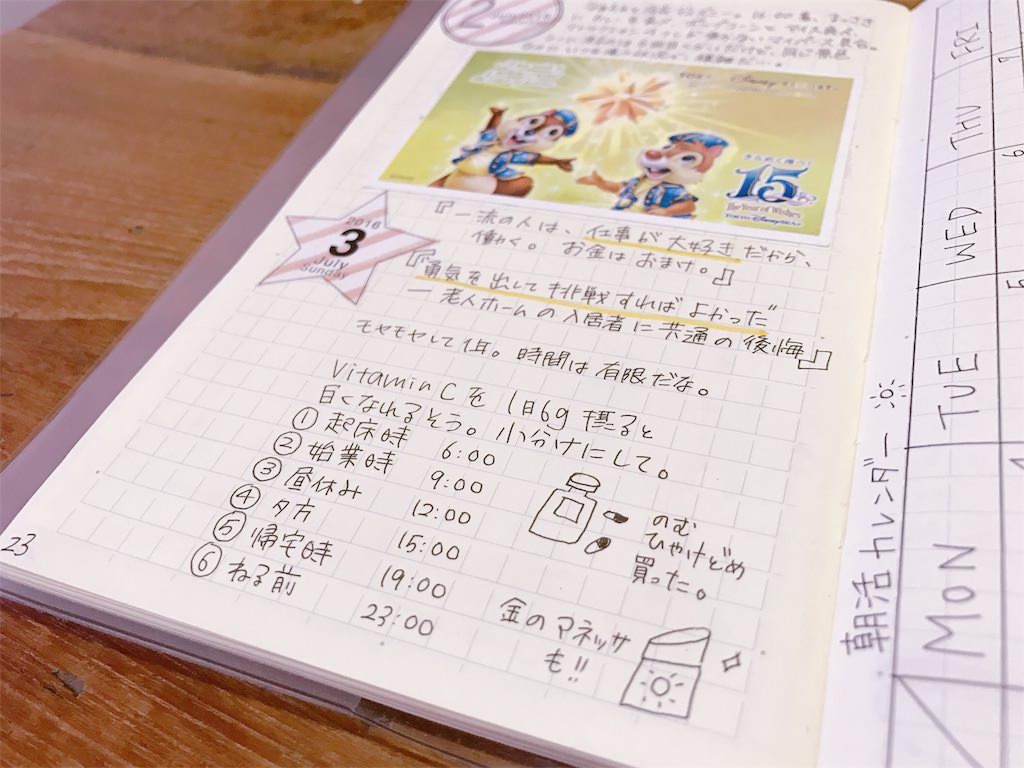 2
『一流の人は、仕事が大好きだから、
働く。お金はおまけ。』
2016
3
July
Sunday
『"勇気を出して挑戦すればよかった"
― 老人ホームの入居者に共通の後悔』
モヤモヤして
時間は有限だな。
Vitamin Cを 1日6g 摂ると
白くなれるそう。小分けにして。
① 起床時 6:00
② 始業時 9:00
③ 昼休み 12:00
④ 夕方 15:00
⑤ 帰宅時 19:00
⑥ ねる前 23:00
のむ
ひやけどめ
買った。
金のアネッサ
も!!
23
Disney
15
The Year of Wishes
TOKYO DisneySEA
朝活カレンダー
MON
TUE
WED
THU
FRI
5
6
7